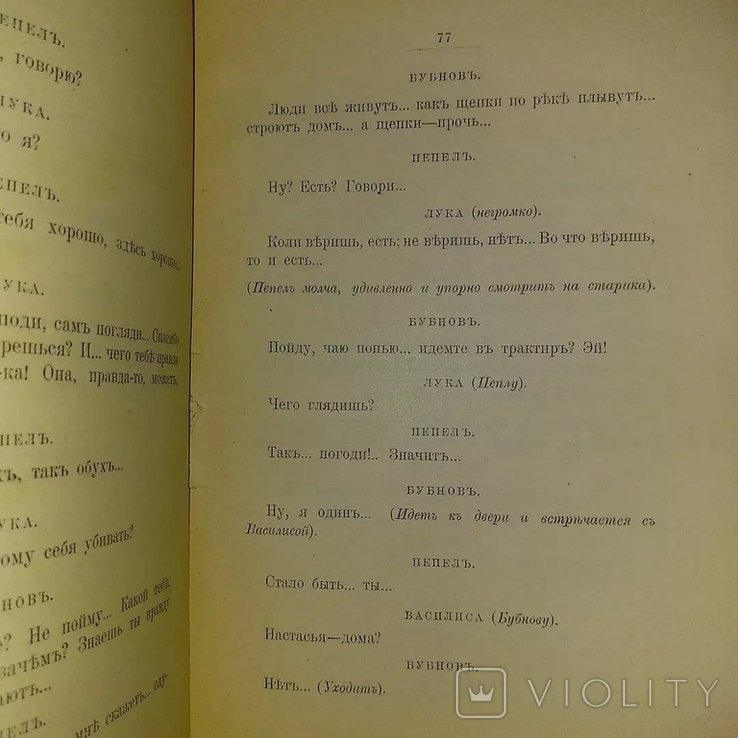 ПЕПЕЛЪ.
говорю?
ЛУКА.
о я?
ПЕПЕЛЪ.
тебя хорошо, здѣсь хорошо..
УКА.
поди, самъ погляди... Спасибо
решься? И... чего тебѣ правда
-ка! Она, правда-то, можетъ,
ПЕЛЪ.
хъ, такъ обухъ...
УКА.
ому себя убивать?
НОВЪ.
? Не пойму... Какой тебѣ,
зачѣмъ? Знаешь ты правду
ають...
ПЕЛЪ.
мнѣ скажетъ...
77
БУБНОВЪ.
Люди всѣ живутъ... какъ щепки по рѣкѣ плывутъ...
строютъ домъ... а щепки—прочь...
ПЕПЕЛЪ.
Ну? Есть? Говори...
ЛУКА (негромко).
Коли вѣришь, есть; не вѣришь, нѣтъ... Во что вѣришь,
то и есть...
(Пепелъ молча, удивленно и упорно смотритъ на старика).
БУБНОВЪ.
Пойду, чаю попью... идемте въ трактиръ? Эй!
ЛУКА (Пеплу).
Чего глядишь?
ПЕПЕЛЪ.
Такъ... погоди!.. Значитъ...
БУБНОВЪ.
Ну, я одинъ... (Идетъ къ двери и встрѣчается съ
Василисой).
ПЕПЕЛЪ.
Стало быть... ты...
ВАСИЛИСА (Бубнову).
Настасья—дома?
БУБНОВЪ.
Нѣтъ... (Уходитъ).
VIOLITY